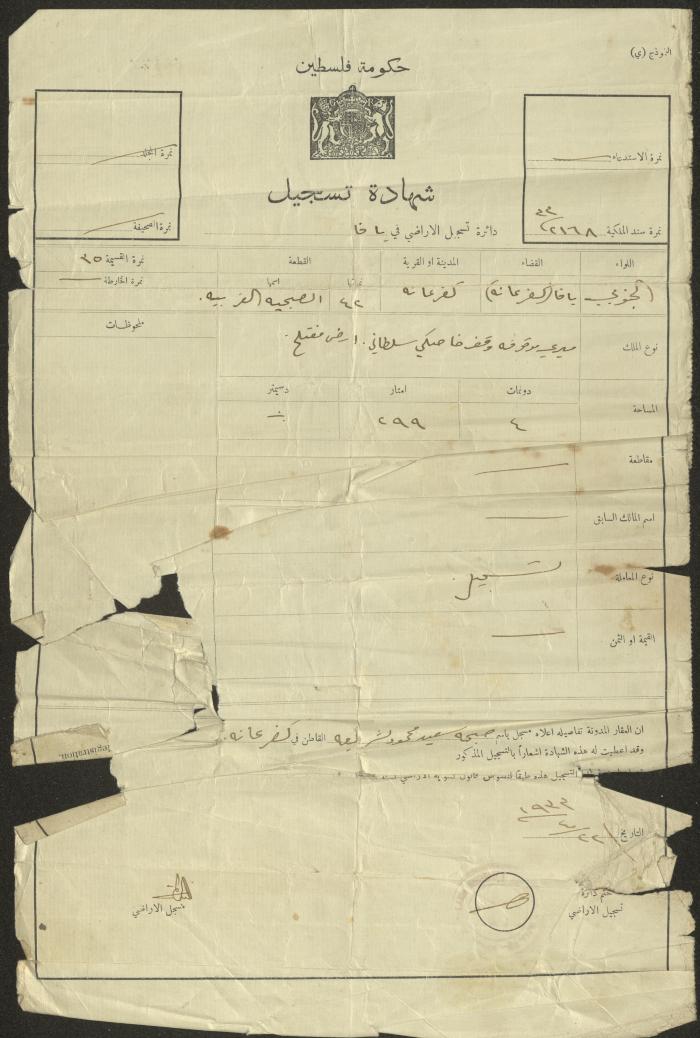 النموذج (ي)
حكومة فلسطين
شهادة تسجيل
نمرة الاستدعاء
نمرة سند الملكية ٢١٦٨ / ٣٣
نمرة المجلد
نمرة الصحيفة
دائرة تسجيل الاراضي في يافا
اللواء القضاء المدينة او القرية القطعة نمرة القسيمة ٣٥
نمرتها اسمها نمرة الخارطة
الجنوبي يافا (كفرعانه) كفرعانه ٤٢ الصبحيه الغربيه
ملحوظات
نوع الملك ميري موقوفه وقف خاصكي سلطاني . ارض مفتلح .
دونمات امتار دسيمتر
المساحة ٤ ٢٩٩
مقاطعة
اسم المالك السابق
نوع المعاملة تسجيل .
القيمة او الثمن
ان العقار المدونة تفاصيله اعلاه مسجل باسم صبحه سعيد محمود القاطن في كفرعانه .
وقد اعطيت له هذه الشهادة اشعاراً بالتسجيل المذكور
التسجيل هذه طبقاً لنصوص قانون تسوية الاراضي
egistration.
التاريخ ٢٢/٤/١٩٣٣
ختم دائرة
تسجيل الاراضي
مسجل الاراضي